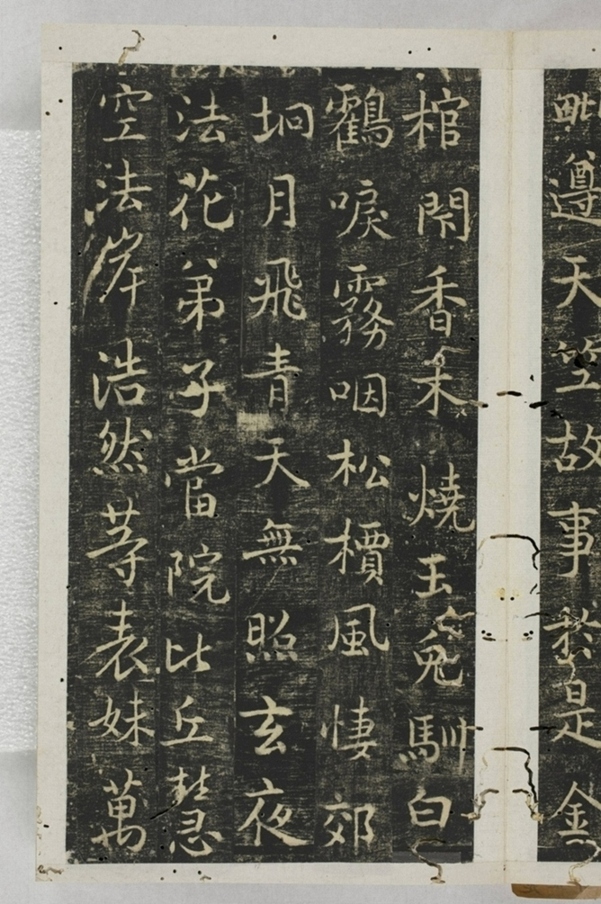 毗遵天竺故事於是金
棺閇香木燒玉兔馴白
鶴唳霧咽松檟風悽郊
坰月飛青天無照玄夜
法花弟子當院比丘慧
空法岸浩然等表妹萬